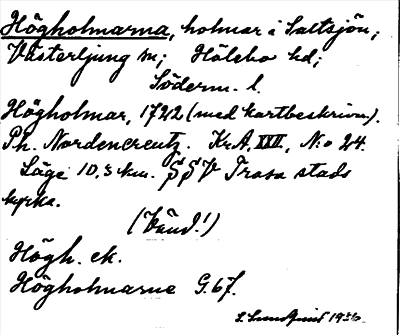 Högholmarna, holmar i Saltsjön;
Västerljung sn; Hölebo hd;
Söderm. l.
Högholmar, 1722 (med kartbeskrivn.).
Ph. Nordencreutz. Kr.A. XXII, N:o 24.
Läge 10,3 km. SSV Trosa stads
kyrka.
(Vänd!)
Högh. ek.
Högholmarne G. 67.